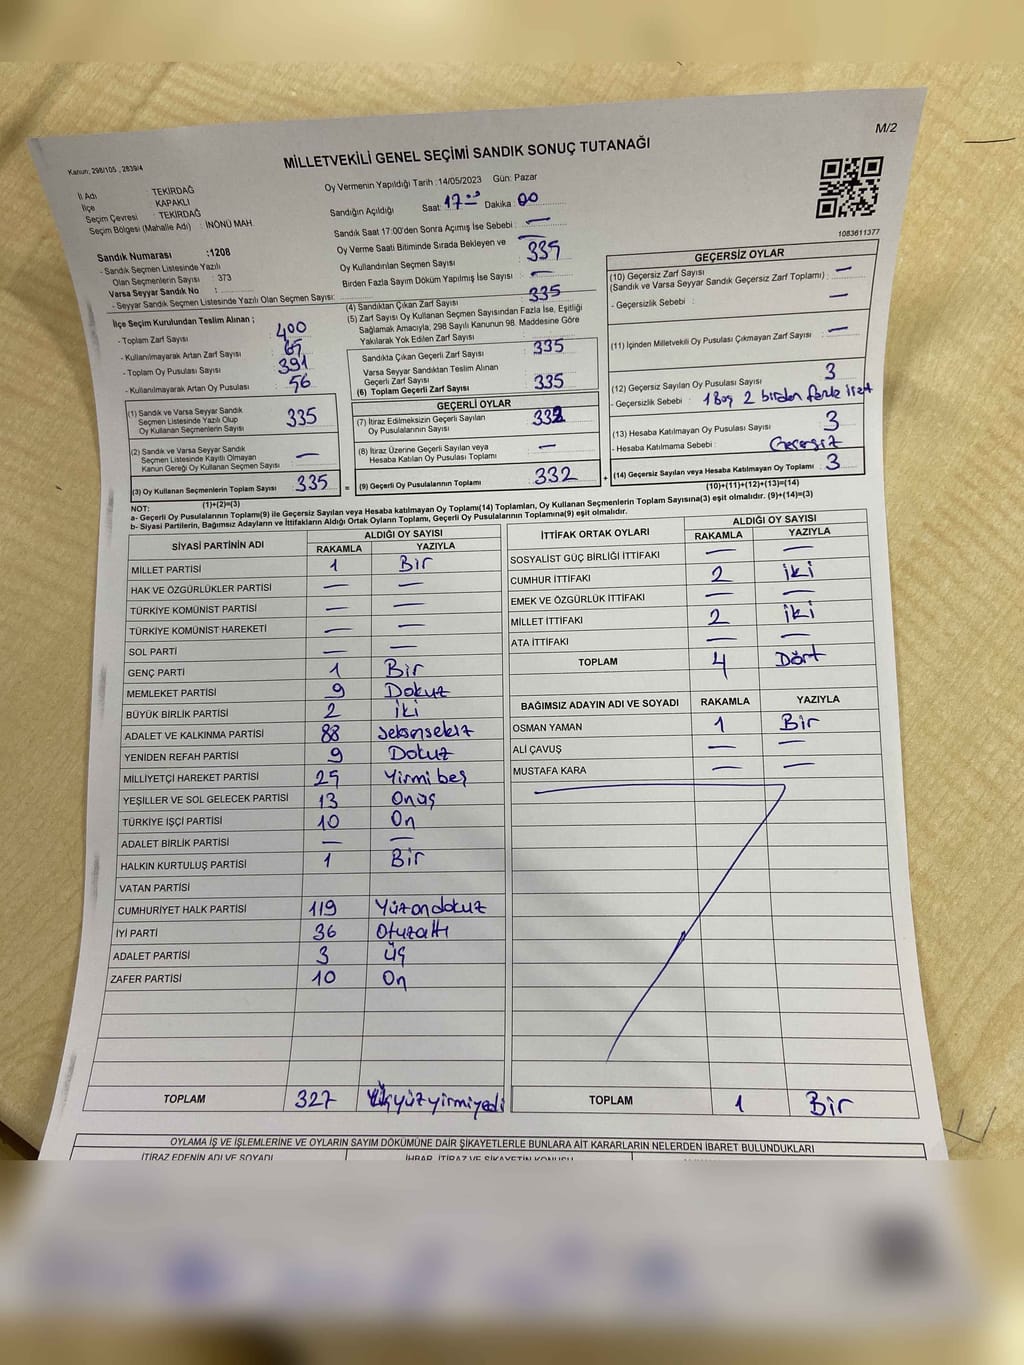 M/2
Kanun: 298/105 , 2839/4
MİLLETVEKİLİ GENEL SEÇİMİ SANDIK SONUÇ TUTANAĞI
İl Adı : TEKİRDAĞ
İlçe : KAPAKLI
Seçim Çevresi : TEKİRDAĞ
Seçim Bölgesi (Mahalle Adı) : İNÖNÜ MAH.
Oy Vermenin Yapıldığı Tarih :14/05/2023 Gün: Pazar
Sandığın Açıldığı Saat 17 Dakika : 00
Sandık Saat 17:00'den Sonra Açımış İse Sebebi : —
Oy Verme Saati Bitiminde Sırada Bekleyen ve
Oy Kullandırılan Seçmen Sayısı 335
Birden Fazla Sayım Döküm Yapılmış İse Sayısı : —
1083611377
Sandık Numarası :1208
- Sandık Seçmen Listesinde Yazılı
Olan Seçmenlerin Sayısı : 373
Varsa Seyyar Sandık No :
- Seyyar Sandık Seçmen Listesinde Yazılı Olan Seçmen Sayısı:
İlçe Seçim Kurulundan Teslim Alınan ;
- Toplam Zarf Sayısı : 400
- Kullanılmayarak Artan Zarf Sayısı : 65
- Toplam Oy Pusulası Sayısı : 391
- Kullanılmayarak Artan Oy Pusulası : 56
(1) Sandık ve Varsa Seyyar Sandık
Seçmen Listesinde Yazılı Olup
Oy Kullanan Seçmenlerin Sayısı 335
(2) Sandık ve Varsa Seyyar Sandık
Seçmen Listesinde Kayıtlı Olmayan
Kanun Gereği Oy Kullanan Seçmen Sayısı —
(3) Oy Kullanan Seçmenlerin Toplam Sayısı 335 =
(1)+(2)=(3)
(4) Sandıktan Çıkan Zarf Sayısı : 335
(5) Zarf Sayısı Oy Kullanan Seçmenden Fazla İse, Eşitliği
Sağlamak Amacıyla, 298 Sayılı Kanunun 98. Maddesine Göre
Yakılarak Yok Edilen Zarf Sayısı :
Sandıkta Çıkan Geçerli Zarf Sayısı 335
Varsa Seyyar Sandıktan Teslim Alınan
Geçerli Zarf Sayısı
(6) Toplam Geçerli Zarf Sayısı 335
GEÇERLİ OYLAR
(7) İtiraz Edilmeksizin Geçerli Sayılan
Oy Pusulalarının Sayısı : 332
(8) İtiraz Üzerine Geçerli Sayılan veya
Hesaba Katılan Oy Pusulası Toplamı —
(9) Geçerli Oy Pusulalarının Toplamı 332 +
GEÇERSİZ OYLAR
(10) Geçersiz Zarf Sayısı —
(Sandık ve Varsa Seyyar Sandık Geçersiz Zarf Toplamı) :
- Geçersizlik Sebebi : —
(11) İçinden Milletvekili Oy Pusulası Çıkmayan Zarf Sayısı : —
(12) Geçersiz Sayılan Oy Pusulası Sayısı : 3
- Geçersizlik Sebebi : 1 Boş 2 birden fazla
(13) Hesaba Katılmayan Oy Pusulası Sayısı : 3
- Hesaba Katılmama Sebebi : Geçersiz
(14) Geçersiz Sayılan veya Hesaba Katılmayan Oy Toplamı 3
(10)+(11)+(12)+(13)=(14)
NOT:
a- Geçerli Oy Pusulalarının Toplamı(9) ile Geçersiz Sayılan veya Hesaba katılmayan Oy Toplamı(14) Toplamları, Oy Kullanan Seçmenlerin Toplam Sayısına(3) eşit olmalıdır. (9)+(14)=(3)
b- Siyasi Partilerin, Bağımsız Adayların ve İttifakların Aldığı Ortak Oyların Toplamı, Geçerli Oy Pusulalarının Toplamına(9) eşit olmalıdır.
SİYASİ PARTİNİN ADI ALDIĞI OY SAYISI
RAKAMLA YAZIYLA
MİLLET PARTİSİ 1 Bir
HAK VE ÖZGÜRLÜKLER PARTİSİ — —
TÜRKİYE KOMÜNİST PARTİSİ — —
TÜRKİYE KOMÜNİST HAREKETİ — —
SOL PARTİ — —
GENÇ PARTİ 1 Bir
MEMLEKET PARTİSİ 9 Dokuz
BÜYÜK BİRLİK PARTİSİ 2 iki
ADALET VE KALKINMA PARTİSİ 88 seksensekiz
YENİDEN REFAH PARTİSİ 9 Dokuz
MİLLİYETÇİ HAREKET PARTİSİ 25 Yirmi beş
YEŞİLLER VE SOL GELECEK PARTİSİ 13 Onüç
TÜRKİYE İŞÇİ PARTİSİ 10 On
ADALET BİRLİK PARTİSİ — —
HALKIN KURTULUŞ PARTİSİ 1 Bir
VATAN PARTİSİ
CUMHURİYET HALK PARTİSİ 119 Yüzondokuz
İYİ PARTİ 36 Otuzaltı
ADALET PARTİSİ 3 üç
ZAFER PARTİSİ 10 On
TOPLAM 327 Üçyüzyirmiyedi
İTTİFAK ORTAK OYLARI ALDIĞI OY SAYISI
RAKAMLA YAZIYLA
SOSYALİST GÜÇ BİRLİĞİ İTTİFAKI — —
CUMHUR İTTİFAKI 2 iki
EMEK VE ÖZGÜRLÜK İTTİFAKI — —
MİLLET İTTİFAKI 2 iki
ATA İTTİFAKI — —
TOPLAM 4 Dört
BAĞIMSIZ ADAYIN ADI VE SOYADI RAKAMLA YAZIYLA
OSMAN YAMAN 1 Bir
ALİ ÇAVUŞ — —
MUSTAFA KARA — —
TOPLAM 1 Bir
OYLAMA İŞ VE İŞLEMLERİNE VE OYLARIN SAYIM DÖKÜMÜNE DAİR ŞİKAYETLERLE BUNLARA AİT KARARLARIN NELERDEN İBARET BULUNDUKLARI
İTİRAZ EDENİN ADI VE SOYADI İHBAR, İTİRAZ VE ŞİKAYETİN KONUSU